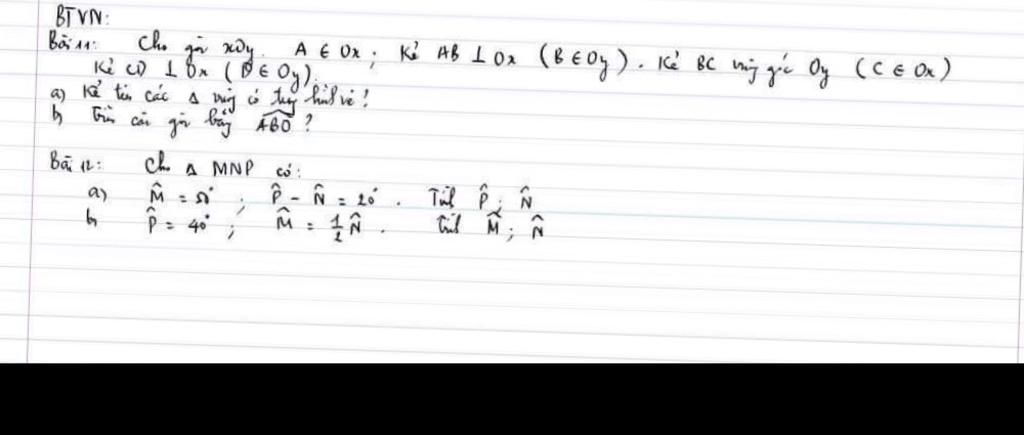 BTVN:
Bài 11: Cho góc xOy. A ∈ Ox ; Kẻ AB ⊥ Ox (B ∈ Oy). Kẻ BC vuông góc Oy (C ∈ Ox)
Kẻ CD ⊥ Ox (D ∈ Oy).
a) Kể tên các Δ vuông có trong hình vẽ!
b) Tìm các góc bằng \widehat{ABO} ?
Bài 12: Cho Δ MNP có:
a) M̂ = 50° ; P̂ - N̂ = 20°. Tính P̂ ; N̂
b) P̂ = 40° ; M̂ = 1/2 N̂. Tính M̂ ; N̂